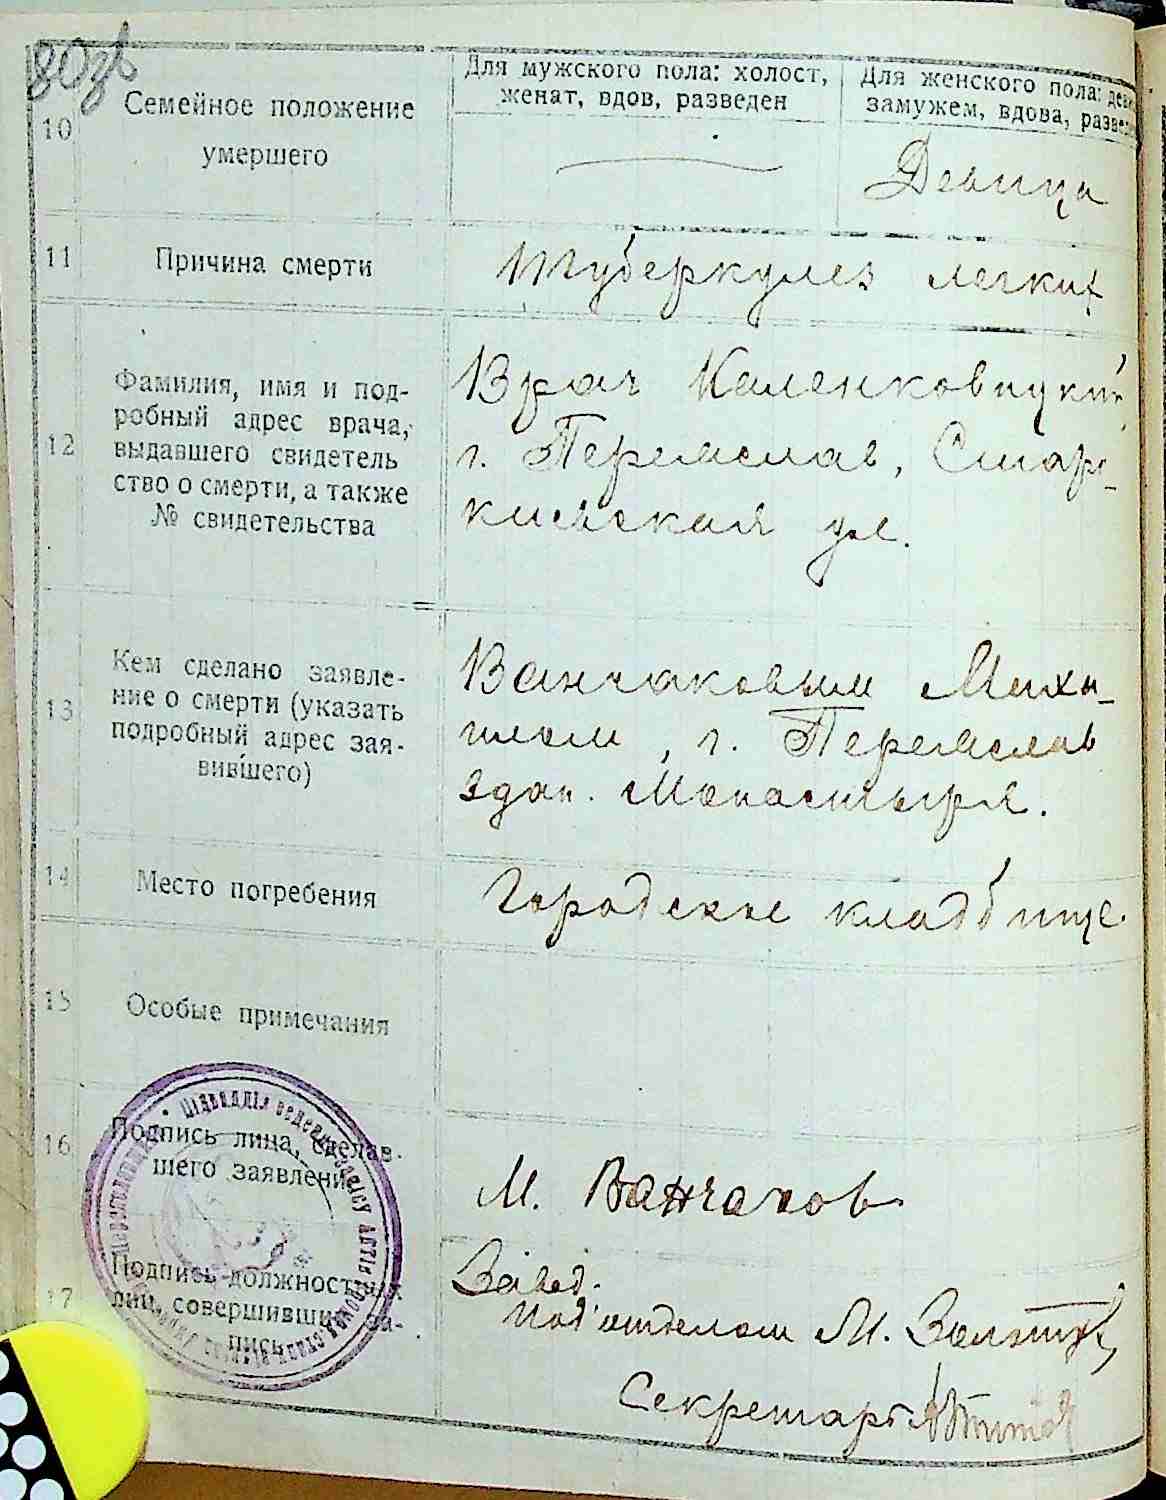 80зв
10
Семейное положение
умершего
Для мужского пола: холост,
женат, вдов, разведен
Для женского пола:
замужем, вдова,
Девица
11
Причина смерти
Туберкулез легких
12
Фамилия, имя и под-
робный адрес врача,
выдавшего свидетель
ство о смерти, а также
№ свидетельства
Врач Каленковицкий
г. Переяслав, Старо-
киевская ул.
13
Кем сделано заявле-
ние о смерти (указать
подробный адрес зая-
вившего)
Ванчаковым Миха-
илом, г. Переяслав
здан. Монастыря.
14
Место погребения
Городское кладбище.
15
Особые примечания
16
Подпись лица, сделав-
шего заявление
М. Ванчаков
17
Подпись должностных
лиц, совершивших за-
пись
Завед.
под'отделом М.
Секретарь